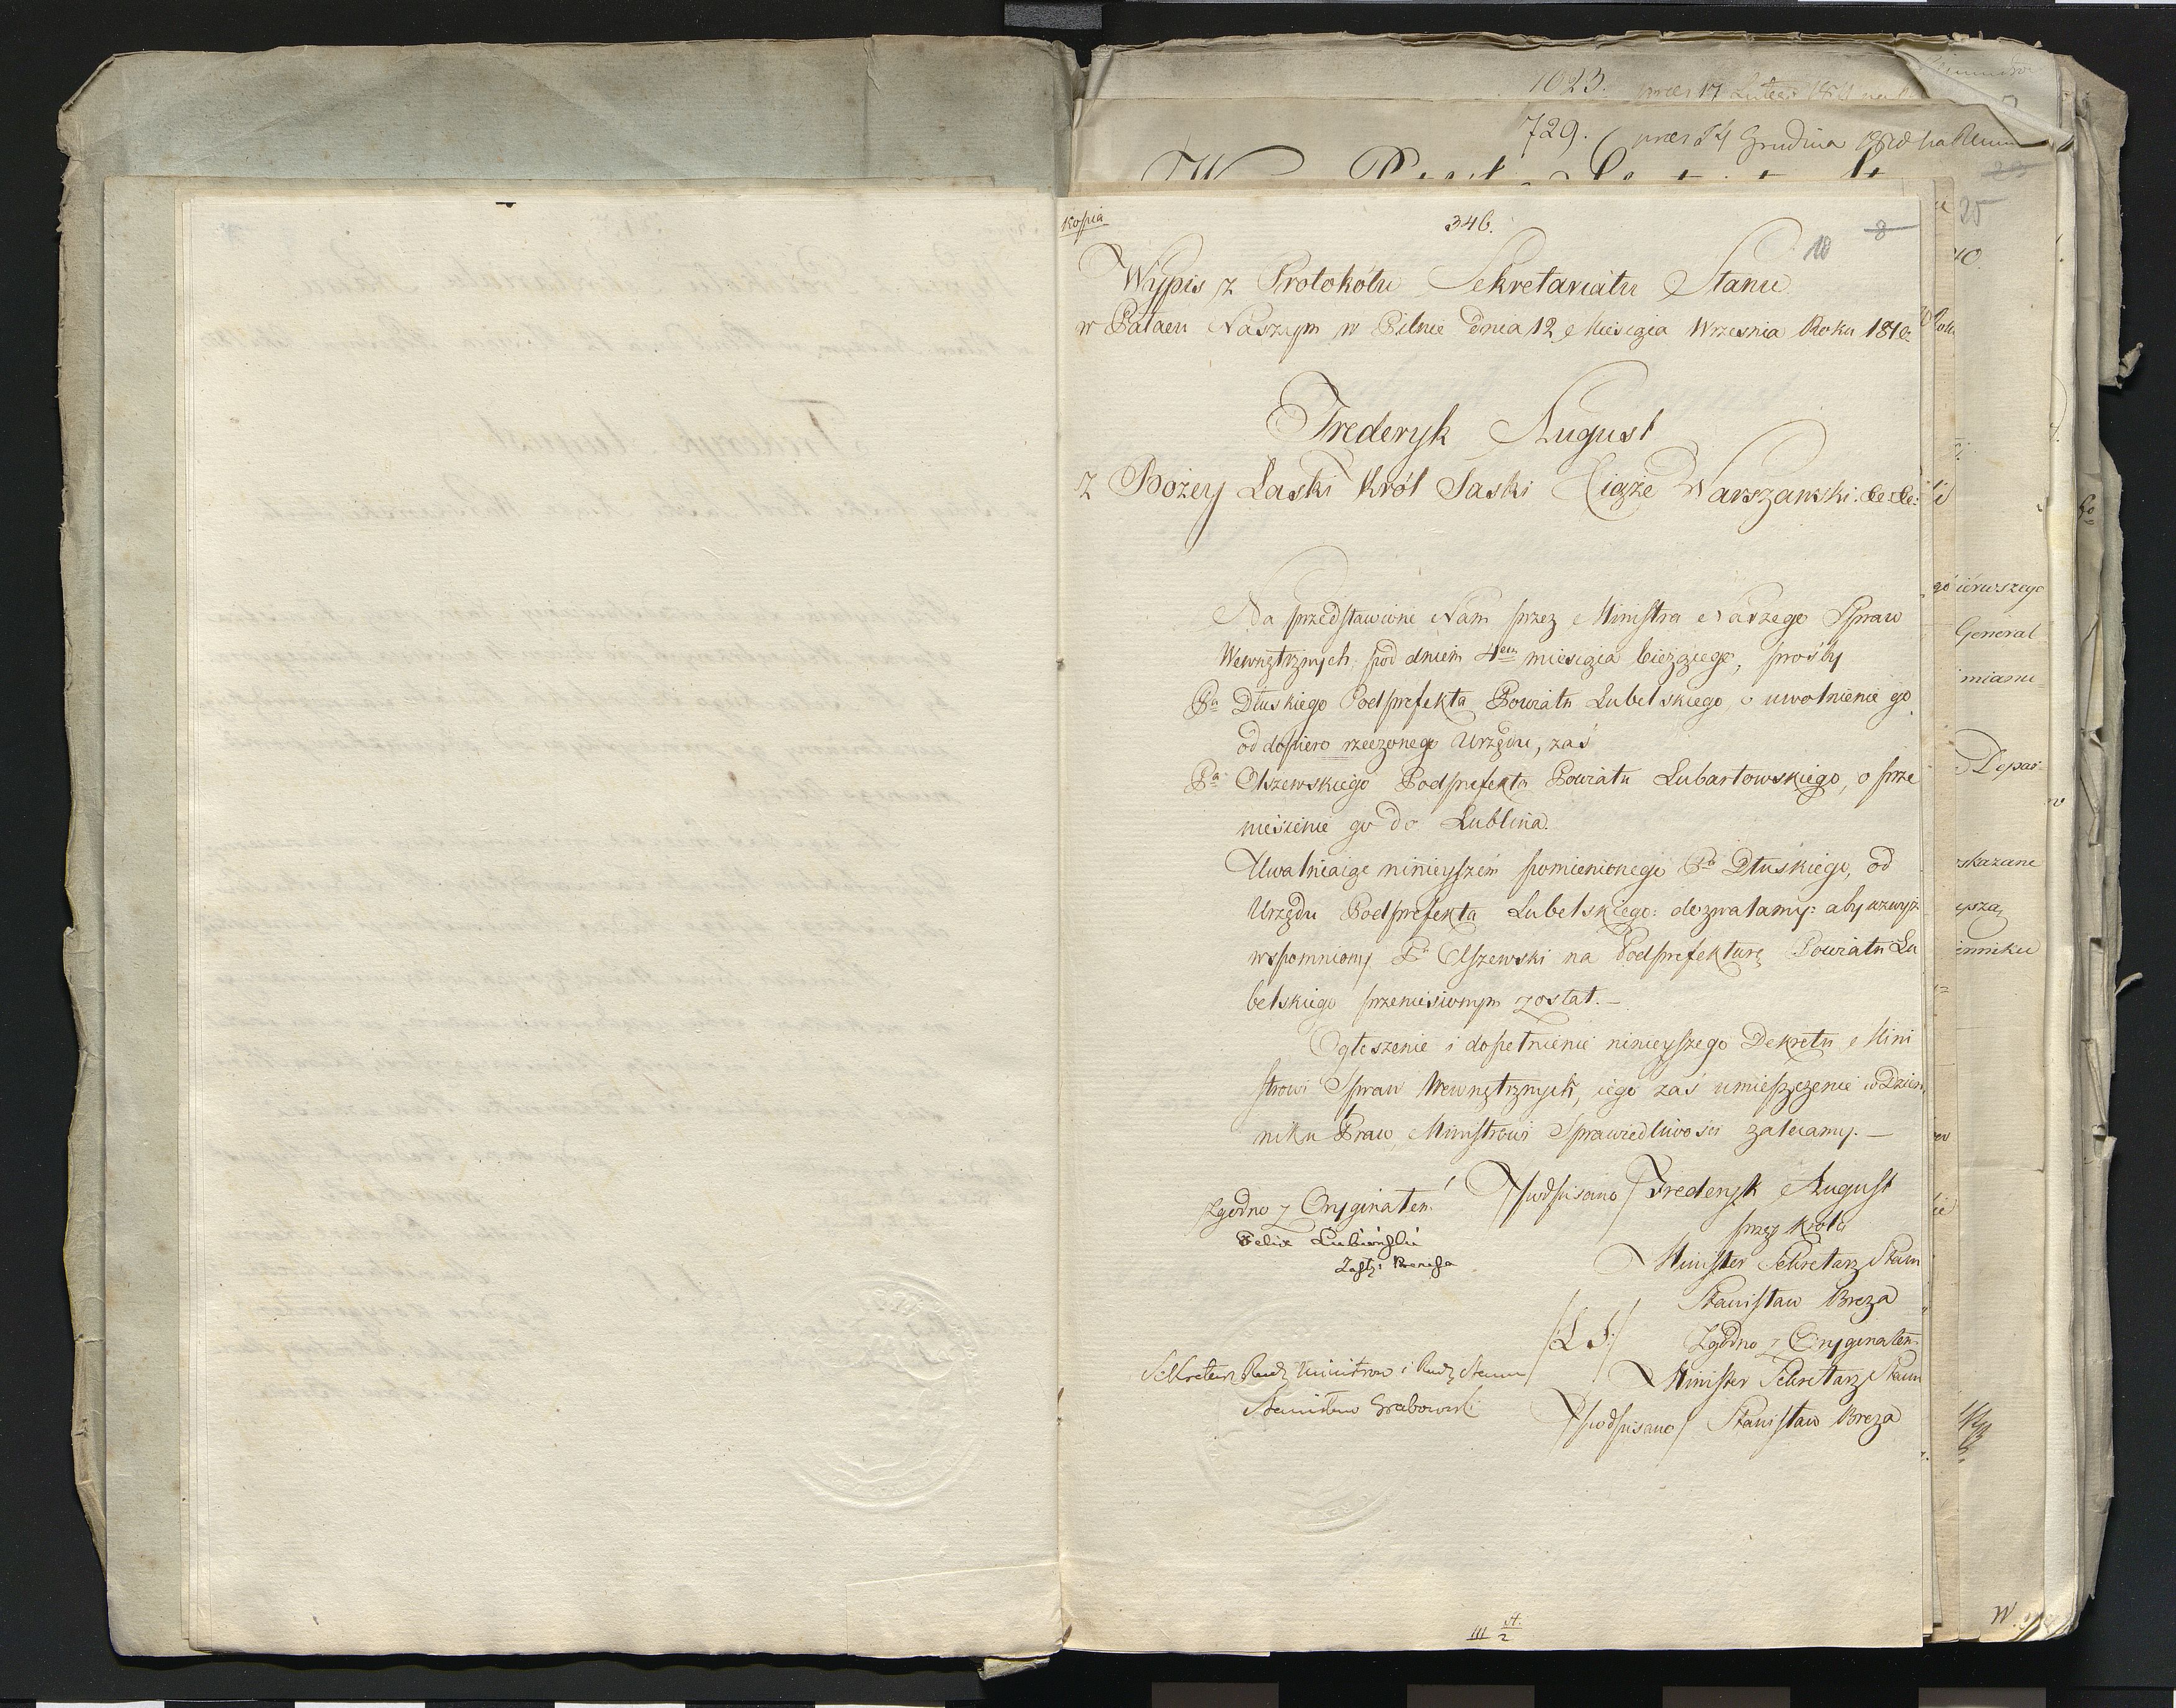 1023.
729. Grudnia
25
Kopia
346.
10 8
Wypis z Protokółu Sekretariatu Stanu
w Pałacu Naszym w Pilnie dnia 12 Miesiąca Września Roku 1810.
Frederyk August
z Bożey Łaski Król Saski Xiąże Warszawski &c &c:
Na przedstawione Nam przez Ministra Naszego Spraw
Wewnętrznych, pod dniem 4em miesiąca bieżącego, prośby
Pa Dłuskiego Podprefekta Powiatu Lubelskiego, o uwolnienie go
od dopiero rzeczonego Urzędu, zaś
Pa Olszewskiego Podprefekta Powiatu Lubartowskiego, o prze
niesienie go do Lublina.
Uwalniaiąc ninieyszem pomienionego Pa Dłuskiego, od
Urzędu Podprefekta Lubelskiego: dozwalamy: aby wzwyż
wspomniony P. Olszewski na Podprefekturę Powiatu Lu
belskiego przeniesionym został. —
Ogłoszenie i dopełnienie ninieyszego Dekretu Mini
strowi Spraw Wewnętrznych, iego zaś umieszczenie w Dzien
niku Praw, Ministrowi Sprawiedliwości zalecamy. —
/podpisano/ Frederyk August
Zgodno z Oryginałem
przez Króla
Felix Łubieński
Minister Sekretarz Stanu
Stanisław Breza
/L S:/ Zgodno z Oryginałem
Sekretarz Rady Ministrow i Rady Stanu
Minister Sekretarz Stanu
Stanisław Grabowski
/podpisano/ Stanisław Breza
III A. 2
ierwszego
General
miaru
Depar
skazane
enniku
W